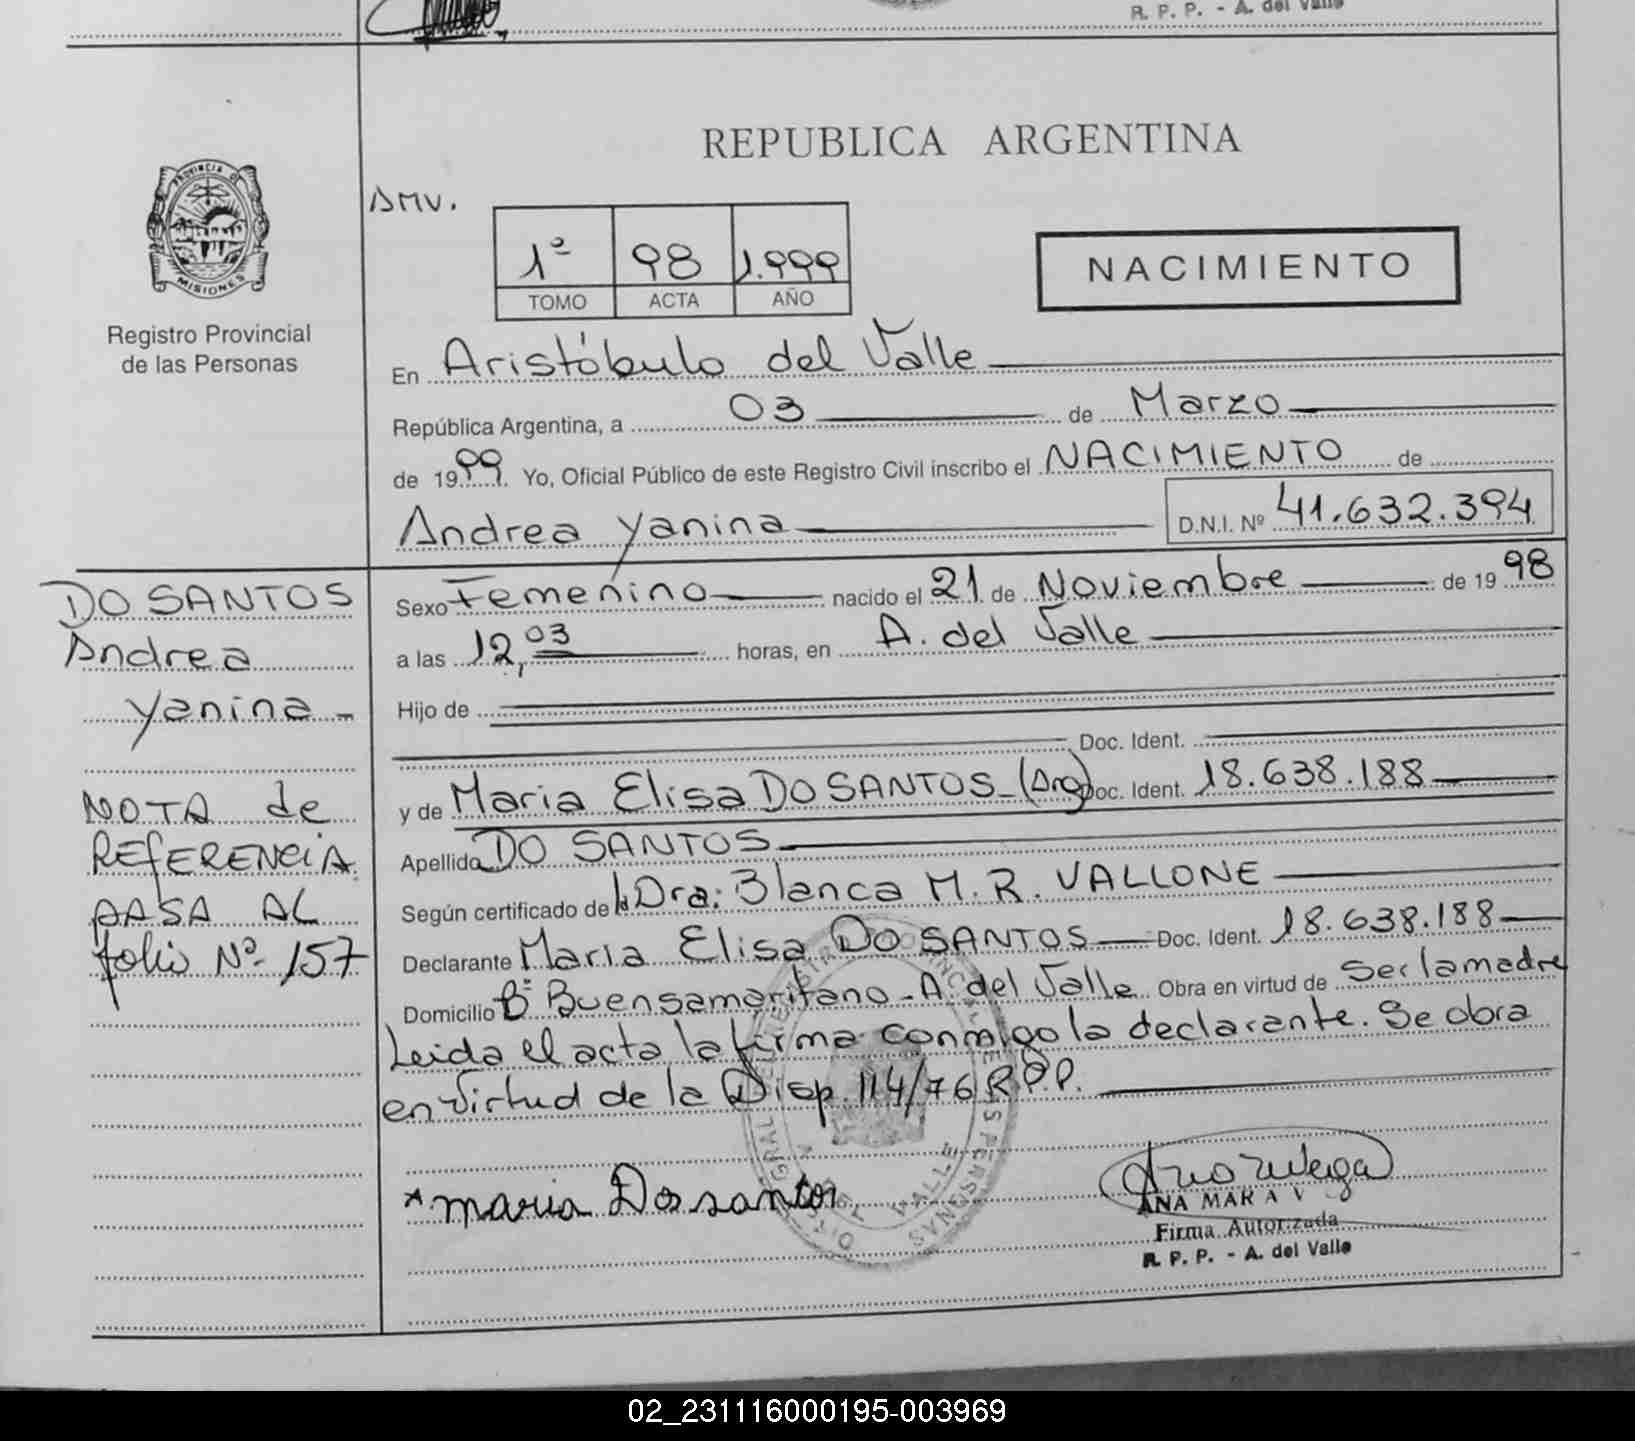 R. P. P. - A. del Valle
REPUBLICA ARGENTINA
PROVINCIA DE
MISIONES
Registro Provincial
de las Personas
AMV.
1º 98 1.999
TOMO ACTA AÑO
NACIMIENTO
En Aristóbulo del Valle
República Argentina, a 03 de Marzo
de 1999. Yo, Oficial Público de este Registro Civil inscribo el NACIMIENTO de
Andrea Yanina D.N.I. Nº 41.632.394
DO SANTOS
Andrea
Yanina -
NOTA de
REFERENCIA
PASA AL
folio Nº 157
Sexo Femenino nacido el 21 de Noviembre de 1998
a las 12,03 horas, en A. del Valle
Hijo de
Doc. Ident.
y de Maria Elisa DO SANTOS - (Arg) Doc. Ident. 18.638.188
Apellido DO SANTOS
Según certificado de la Dra: Blanca M. R. VALLONE
Declarante Maria Elisa DO SANTOS Doc. Ident. 18.638.188
Domicilio Bº Buensamaritano - A. del Valle Obra en virtud de Ser la madre
Leida el acta la firma conmigo la declarante. Se obra
en virtud de la Disp. 114/76 R.P.P.
* maria Dosantos
ANA MAR A V
Firma Autorizada
R. P. P. - A. del Valle
02_231116000195-003969